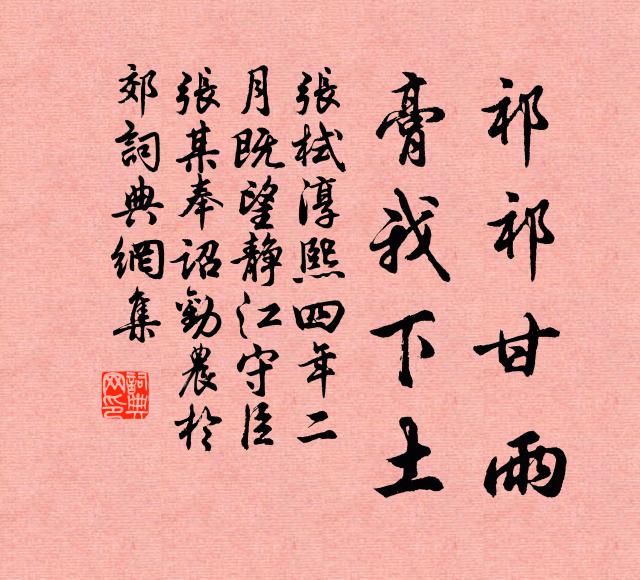 祁祁甘雨
膏我下土
張栻淳熙四年二
月既望静江守臣
張某奉詔勸農於
郊詞典網集
詞典网印